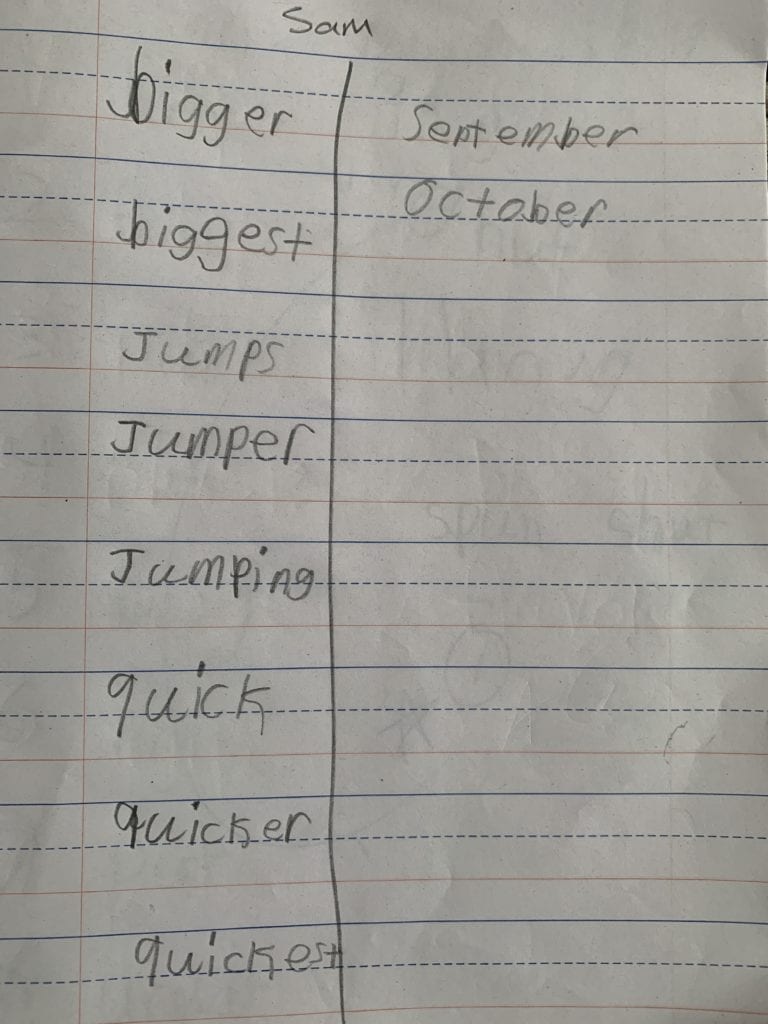 Sam
bigger
biggest
Jumps
Jumper
Jumping
quick
quicker
quickest
September
October